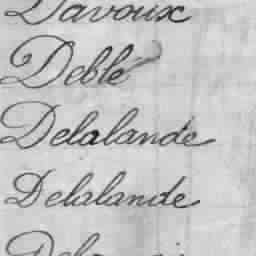 Davoux
Deblé
Delalande
Delalande